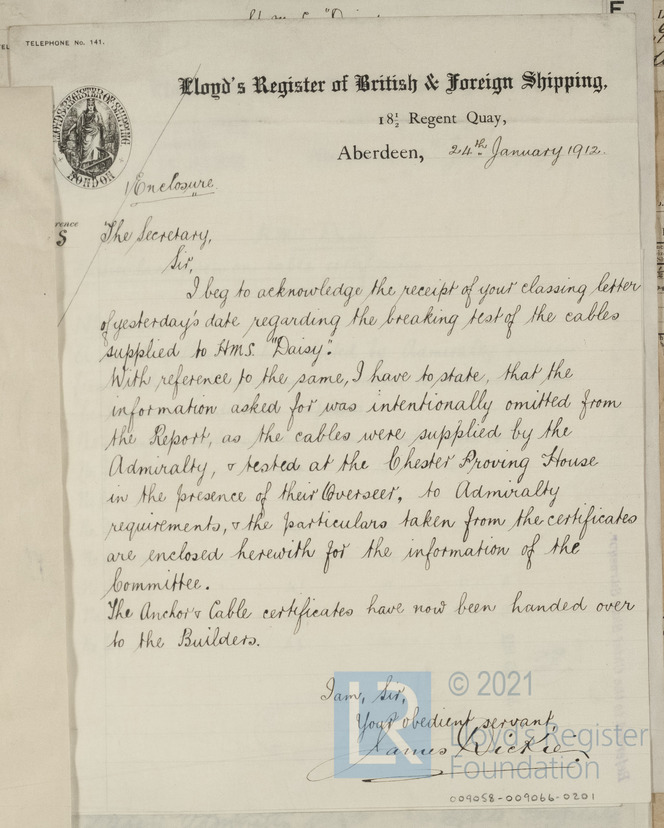 TELEPHONE No. 141.
Lloyd's Register of British & Foreign Shipping,
18½ Regent Quay,
Aberdeen, 24th January 1912.
LLOYD'S REGISTER OF SHIPPING
LONDON
1 Enclosure.
The Secretary,
Sir,
I beg to acknowledge the receipt of your classing letter
of yesterday's date regarding the breaking test of the cables
supplied to HMS. "Daisy".
With reference to the same, I have to state, that the
information asked for was intentionally omitted from
the Report, as the cables were supplied by the
Admiralty, & tested at the Chester Proving House
in the presence of their Overseer, to Admiralty
requirements, & the particulars taken from the certificates
are enclosed herewith for the information of the
Committee.
The Anchor & Cable certificates have now been handed over
to the Builders.
I am, Sir,
Your obedient servant
James Dickie
© 2021
LR
Lloyd's Register
Foundation
009058-009066-0201